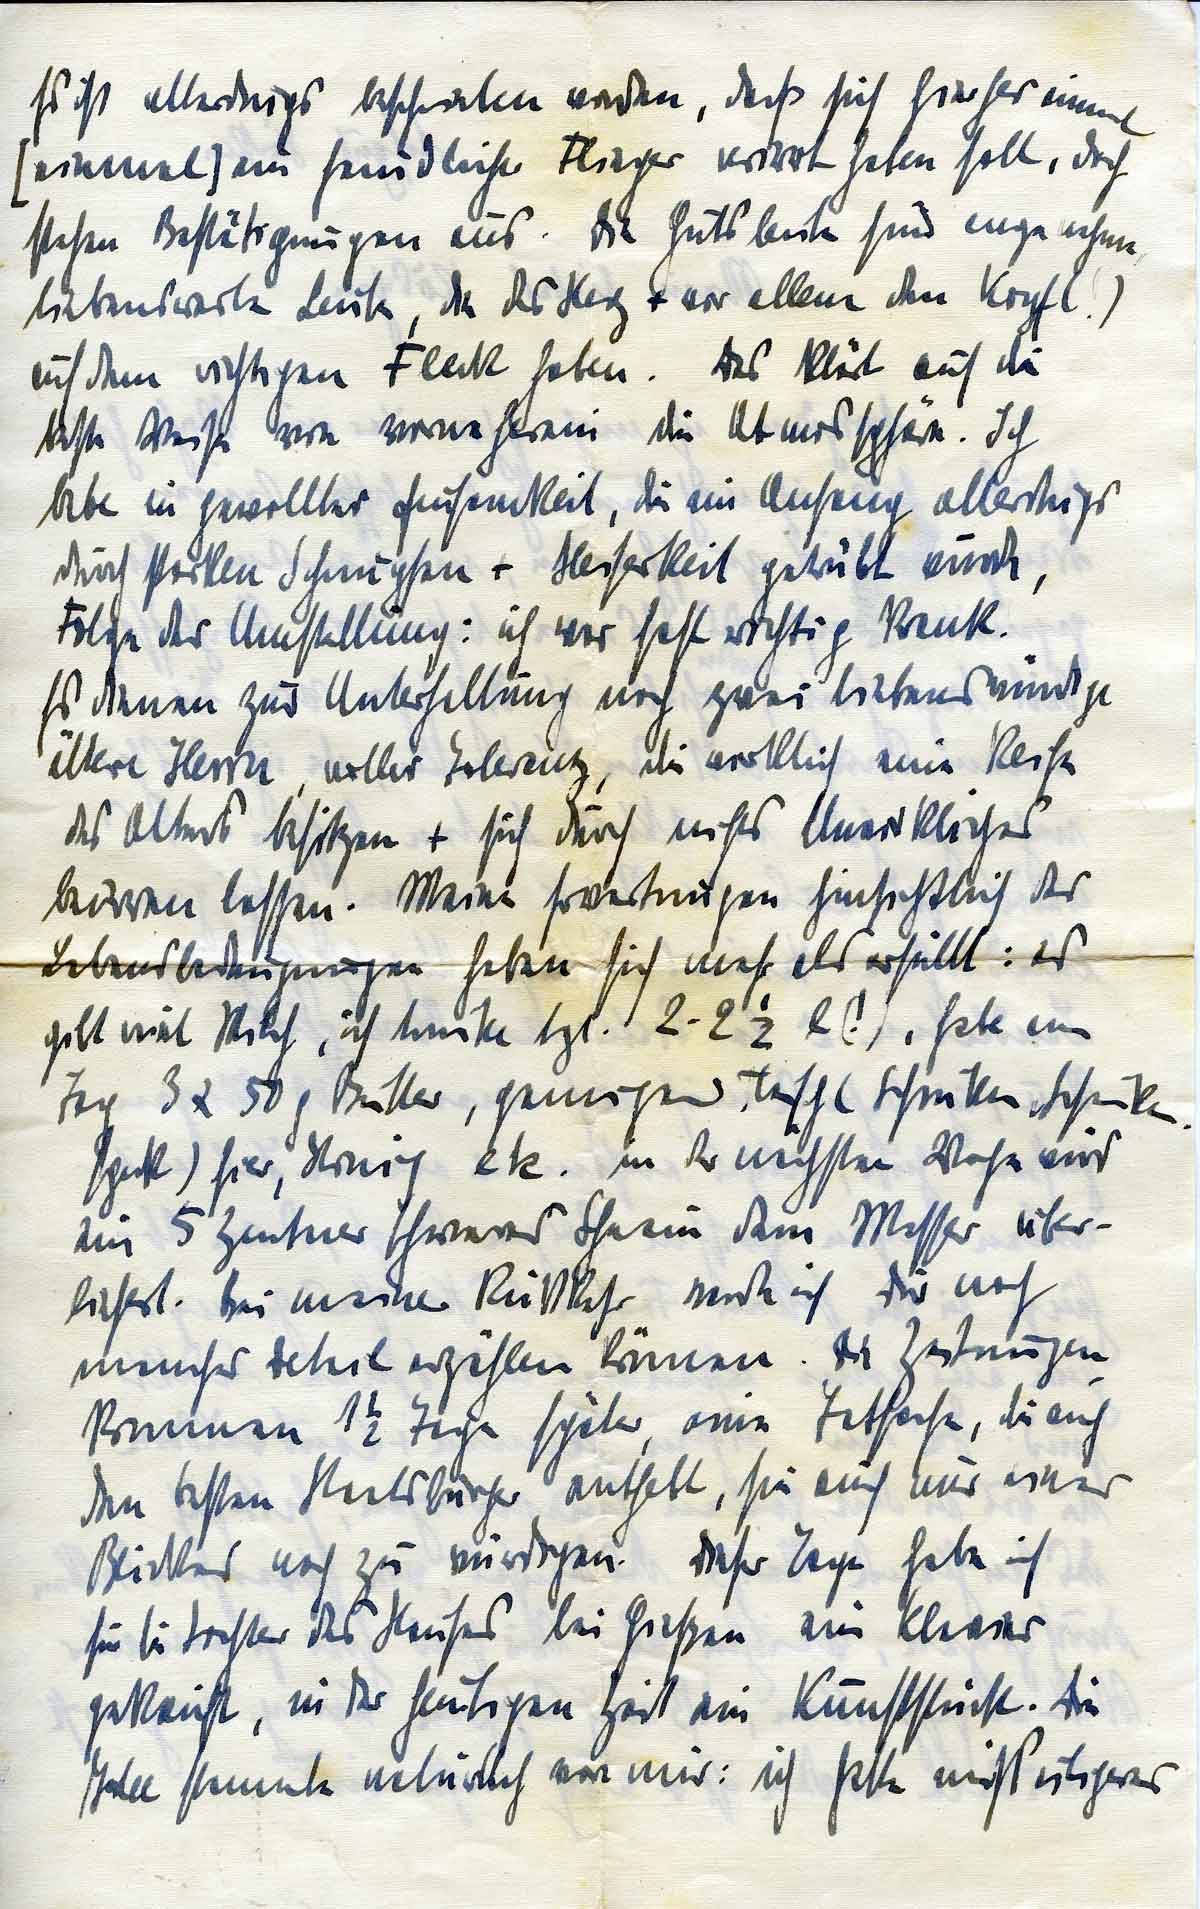 Es ist allerdings beschrieben worden, dass sich hierher einmal
[einmal] ein feindlicher Flieger verirrt haben soll, doch
stehen Bestätigungen aus. Die Gutsleute sind angenehme,
liebenswerte Leute, die das Herz + vor allem den Kopf (!)
auf dem richtigen Fleck haben. Das klärt auf die
beste Weise von vorneherein die Atmosphäre. Ich
lebe in gewollter Einsamkeit, die am Anfang allerdings
durch starken Schnupfen + Heiserkeit getrübt wurde,
Folge der Umstellung: ich war fast richtig krank.
Es dienen zur Unterhaltung noch zwei liebenswürdige
ältere Herrn, voller Toleranz, die wirklich eine Reife
des Alters besitzen + sich durch nichts Unwirkliches
beirren lassen. Meine Erwartungen hinsichtlich der
Lebensbedingungen haben sich mehr als erfüllt: es
gibt viel Milch, ich trinke tgl. 2-2½ l (!), habe am
Tag 3 x 50 g Butter, genügend Fleisch (Schinken, Schinken
speck) hier, Honig etc. in der nächsten Woche wird
ein 5 Zentner schweres Schwein dem Messer über-
liefert. Bei meiner Rückkehr werde ich Dir noch
manches Detail erzählen können. Die Zeitungen
kommen 1½ Tage später, eine Tatsache, die auch
den besten Staatsbürger enthebt, sie auch nur eines
Blickes noch zu würdigen. Dieser Tage habe ich
für die Tochter des Hauses bei Gießen ein Klavier
gekauft, in der heutigen Zeit ein Kunststück. Die
Idee stammte natürlich von mir: ich hatte nichts eiligeres